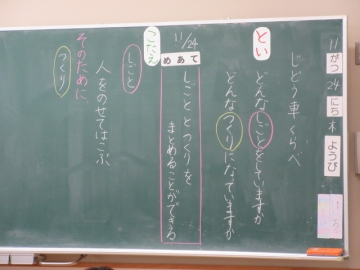 11がつ24にち木ようび
じどう車くらべ
とい
どんなしごとをしていますか
どんなつくりになっていますか
11/24
めあて
しごととつくりを
まとめることができる
こたえ
しごと
人をのせてはこぶ
そのために
つくり